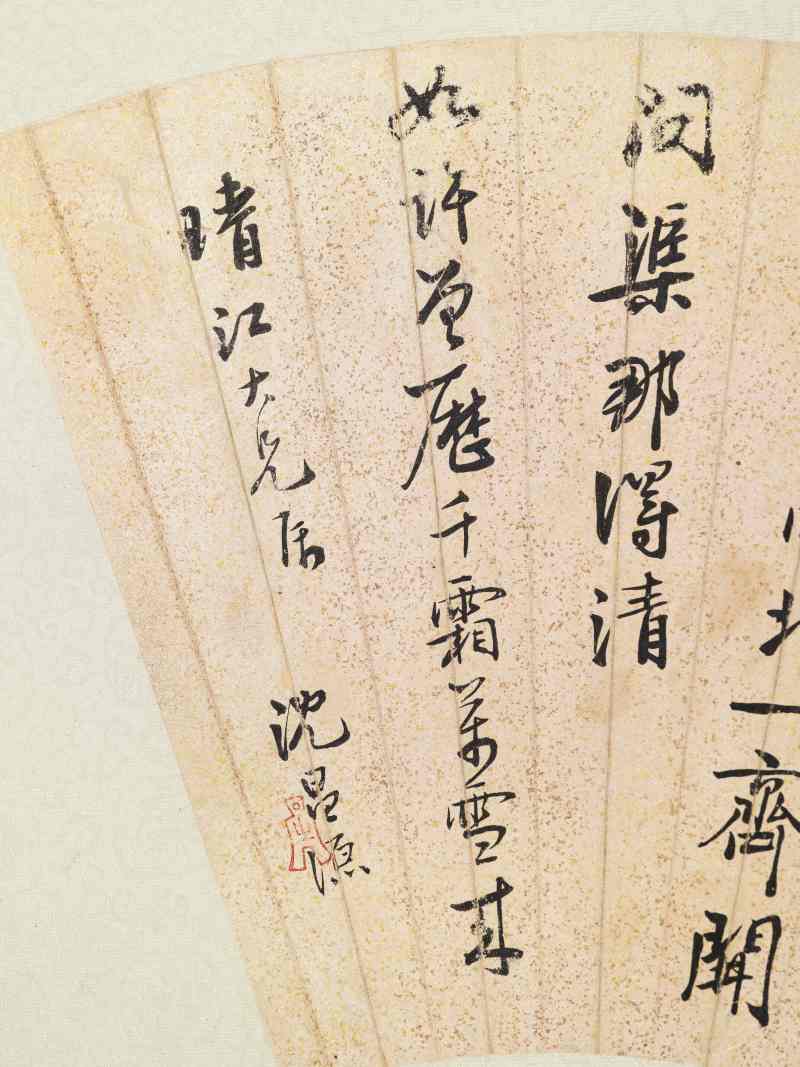 一齊開
問渠那得清
如許曾歷千霜萬雪來
晴江大兄属
沈昌源